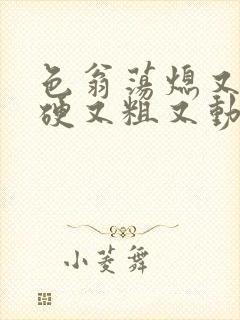 色翁荡熄又
硬又粗又動
小菱舞